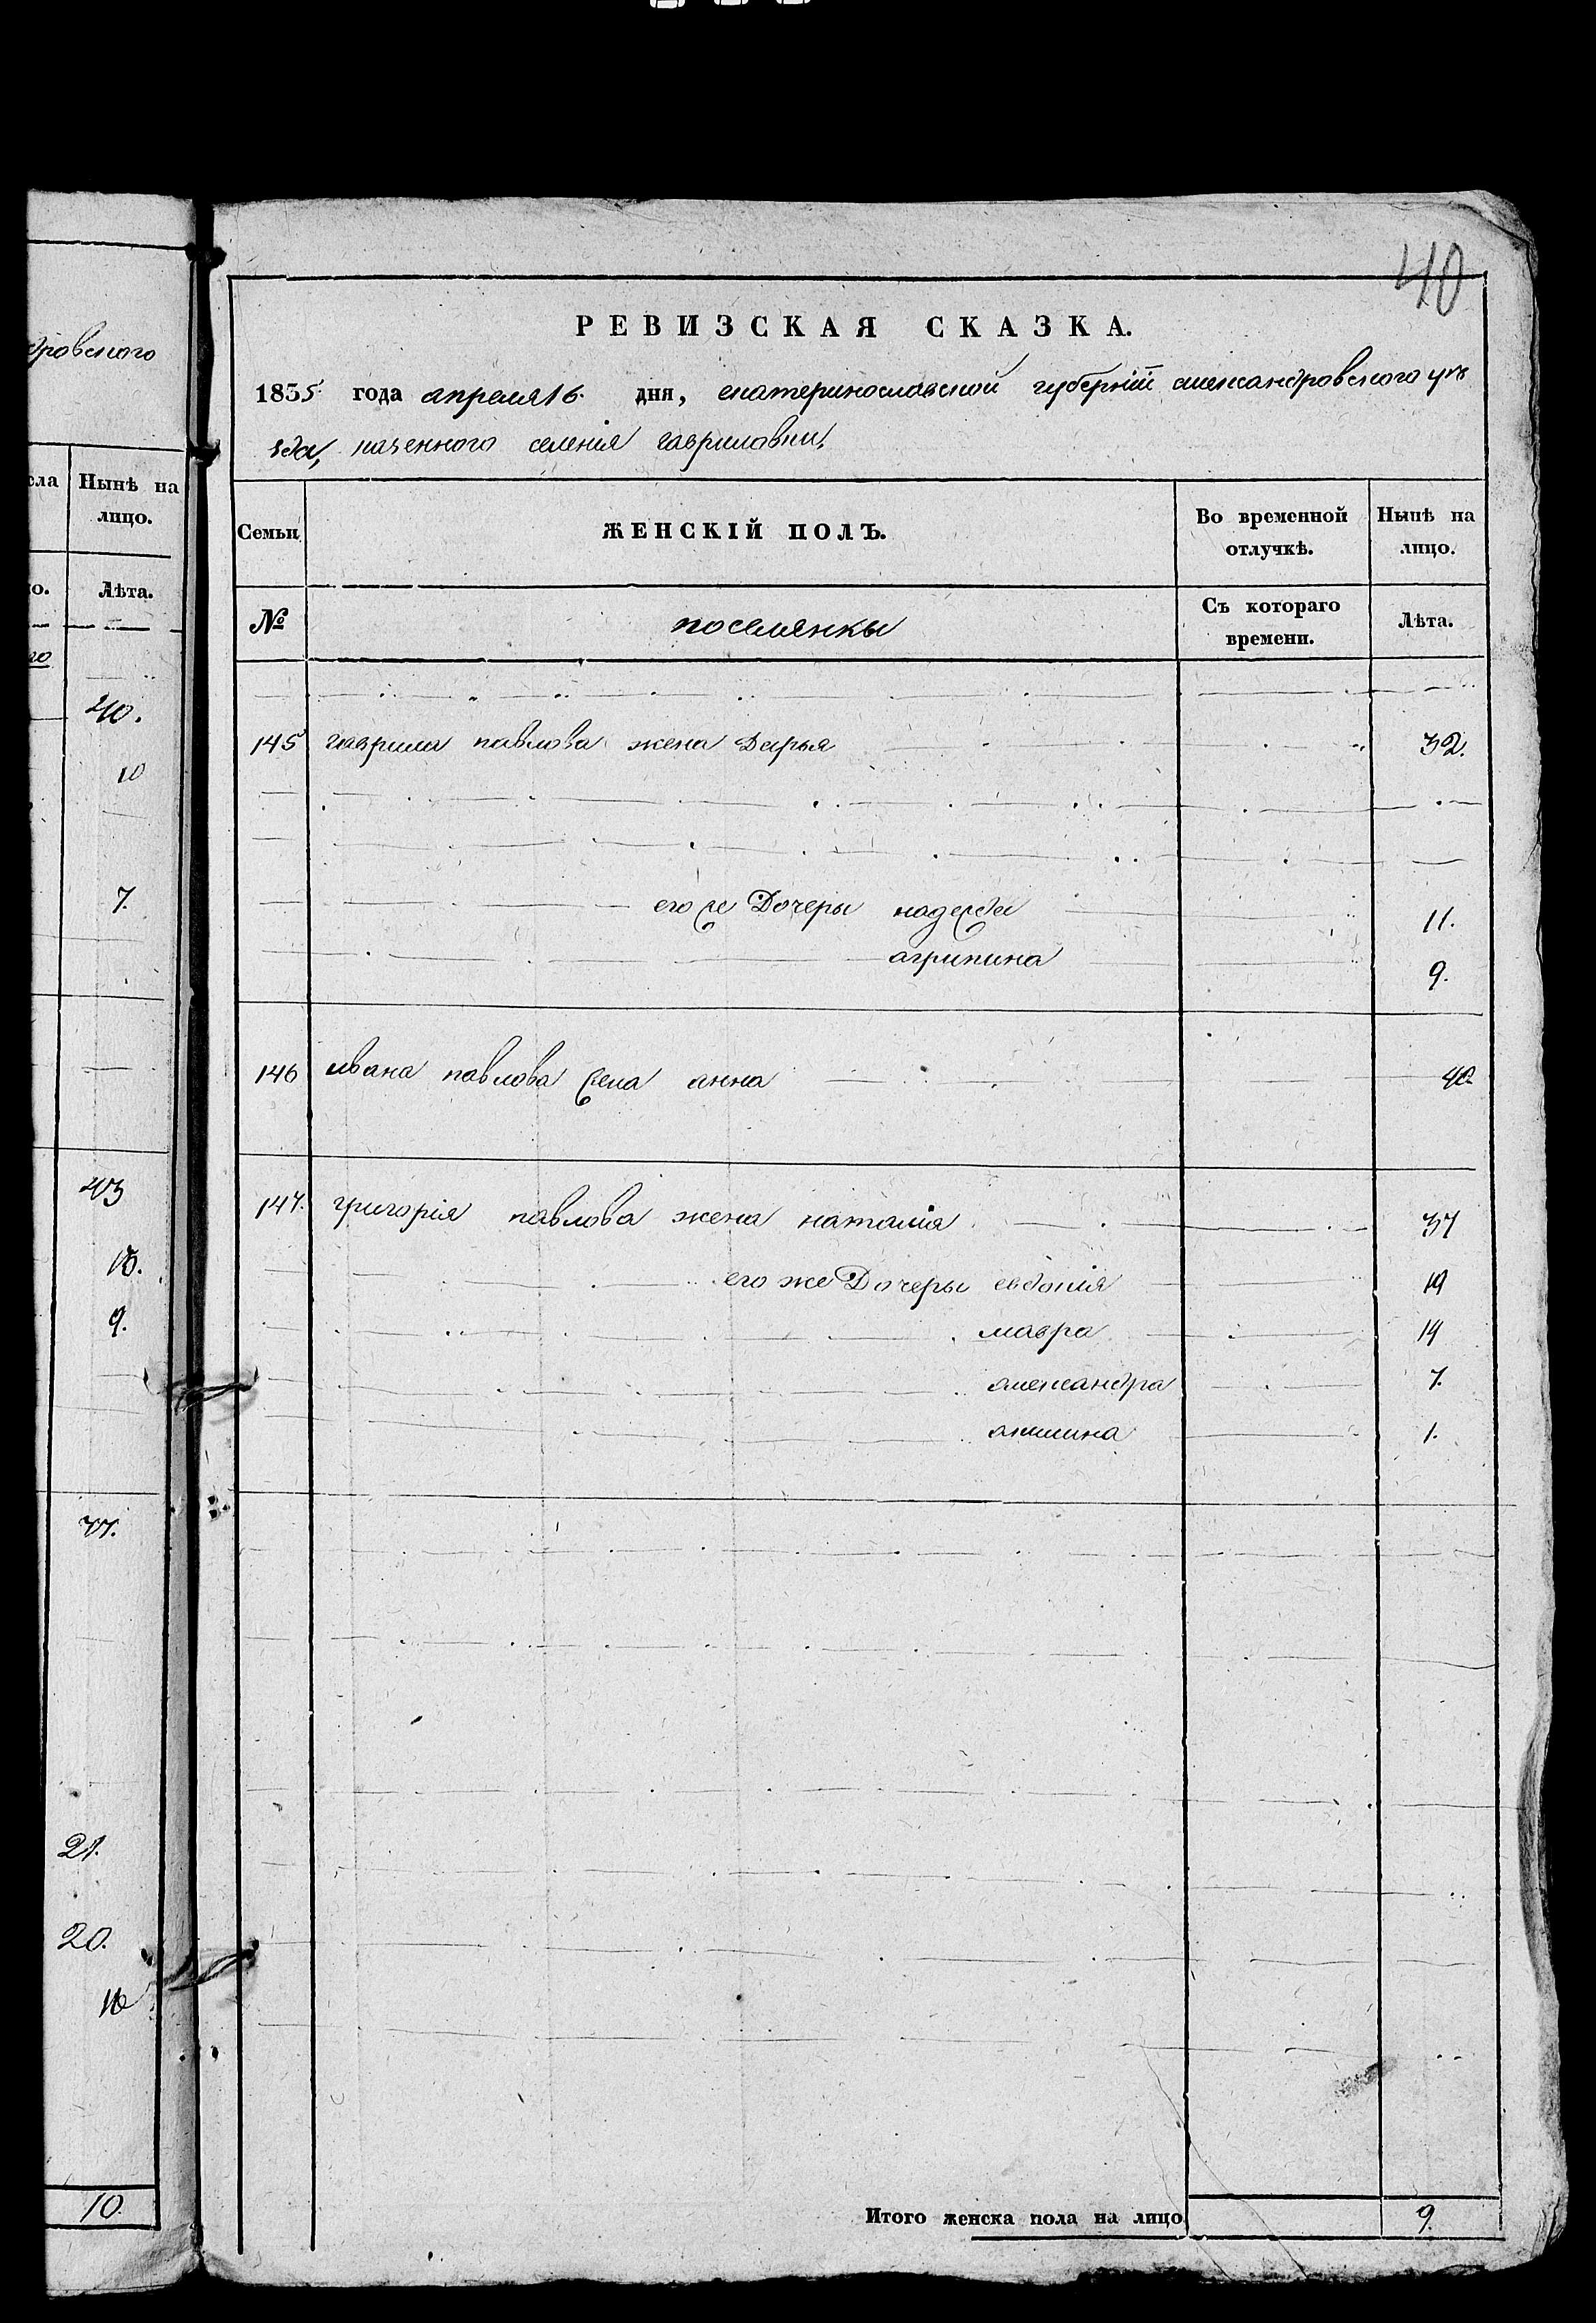 дровского
сла
Нынѣ на
лицо.
о.
Лѣта.
го
40.
10
7.
9.
21.
20.
10.
40
РЕВИЗСКАЯ СКАЗКА.
1835 года апреля 16. дня, екатеринославской губерніи александровского уѣ
зда, казенного селенія гавриловки,
Семьи
ЖЕНСКІЙ ПОЛЪ.
Во временной
отлучкѣ.
Нынѣ на
лицо.
№
поселянкы
Съ котораго
времени.
Лѣта.
145 гаврила павлова жена Дарья 32.
его же Дочеры надежда 11.
агрипина 9.
146 ивана павлова жена анна 40
147. григорія павлова жена наталія 37
его же Дочеры евдокія 19
мавра 14
александра 7.
акилина 1.
Итого женска пола на лицо 9.